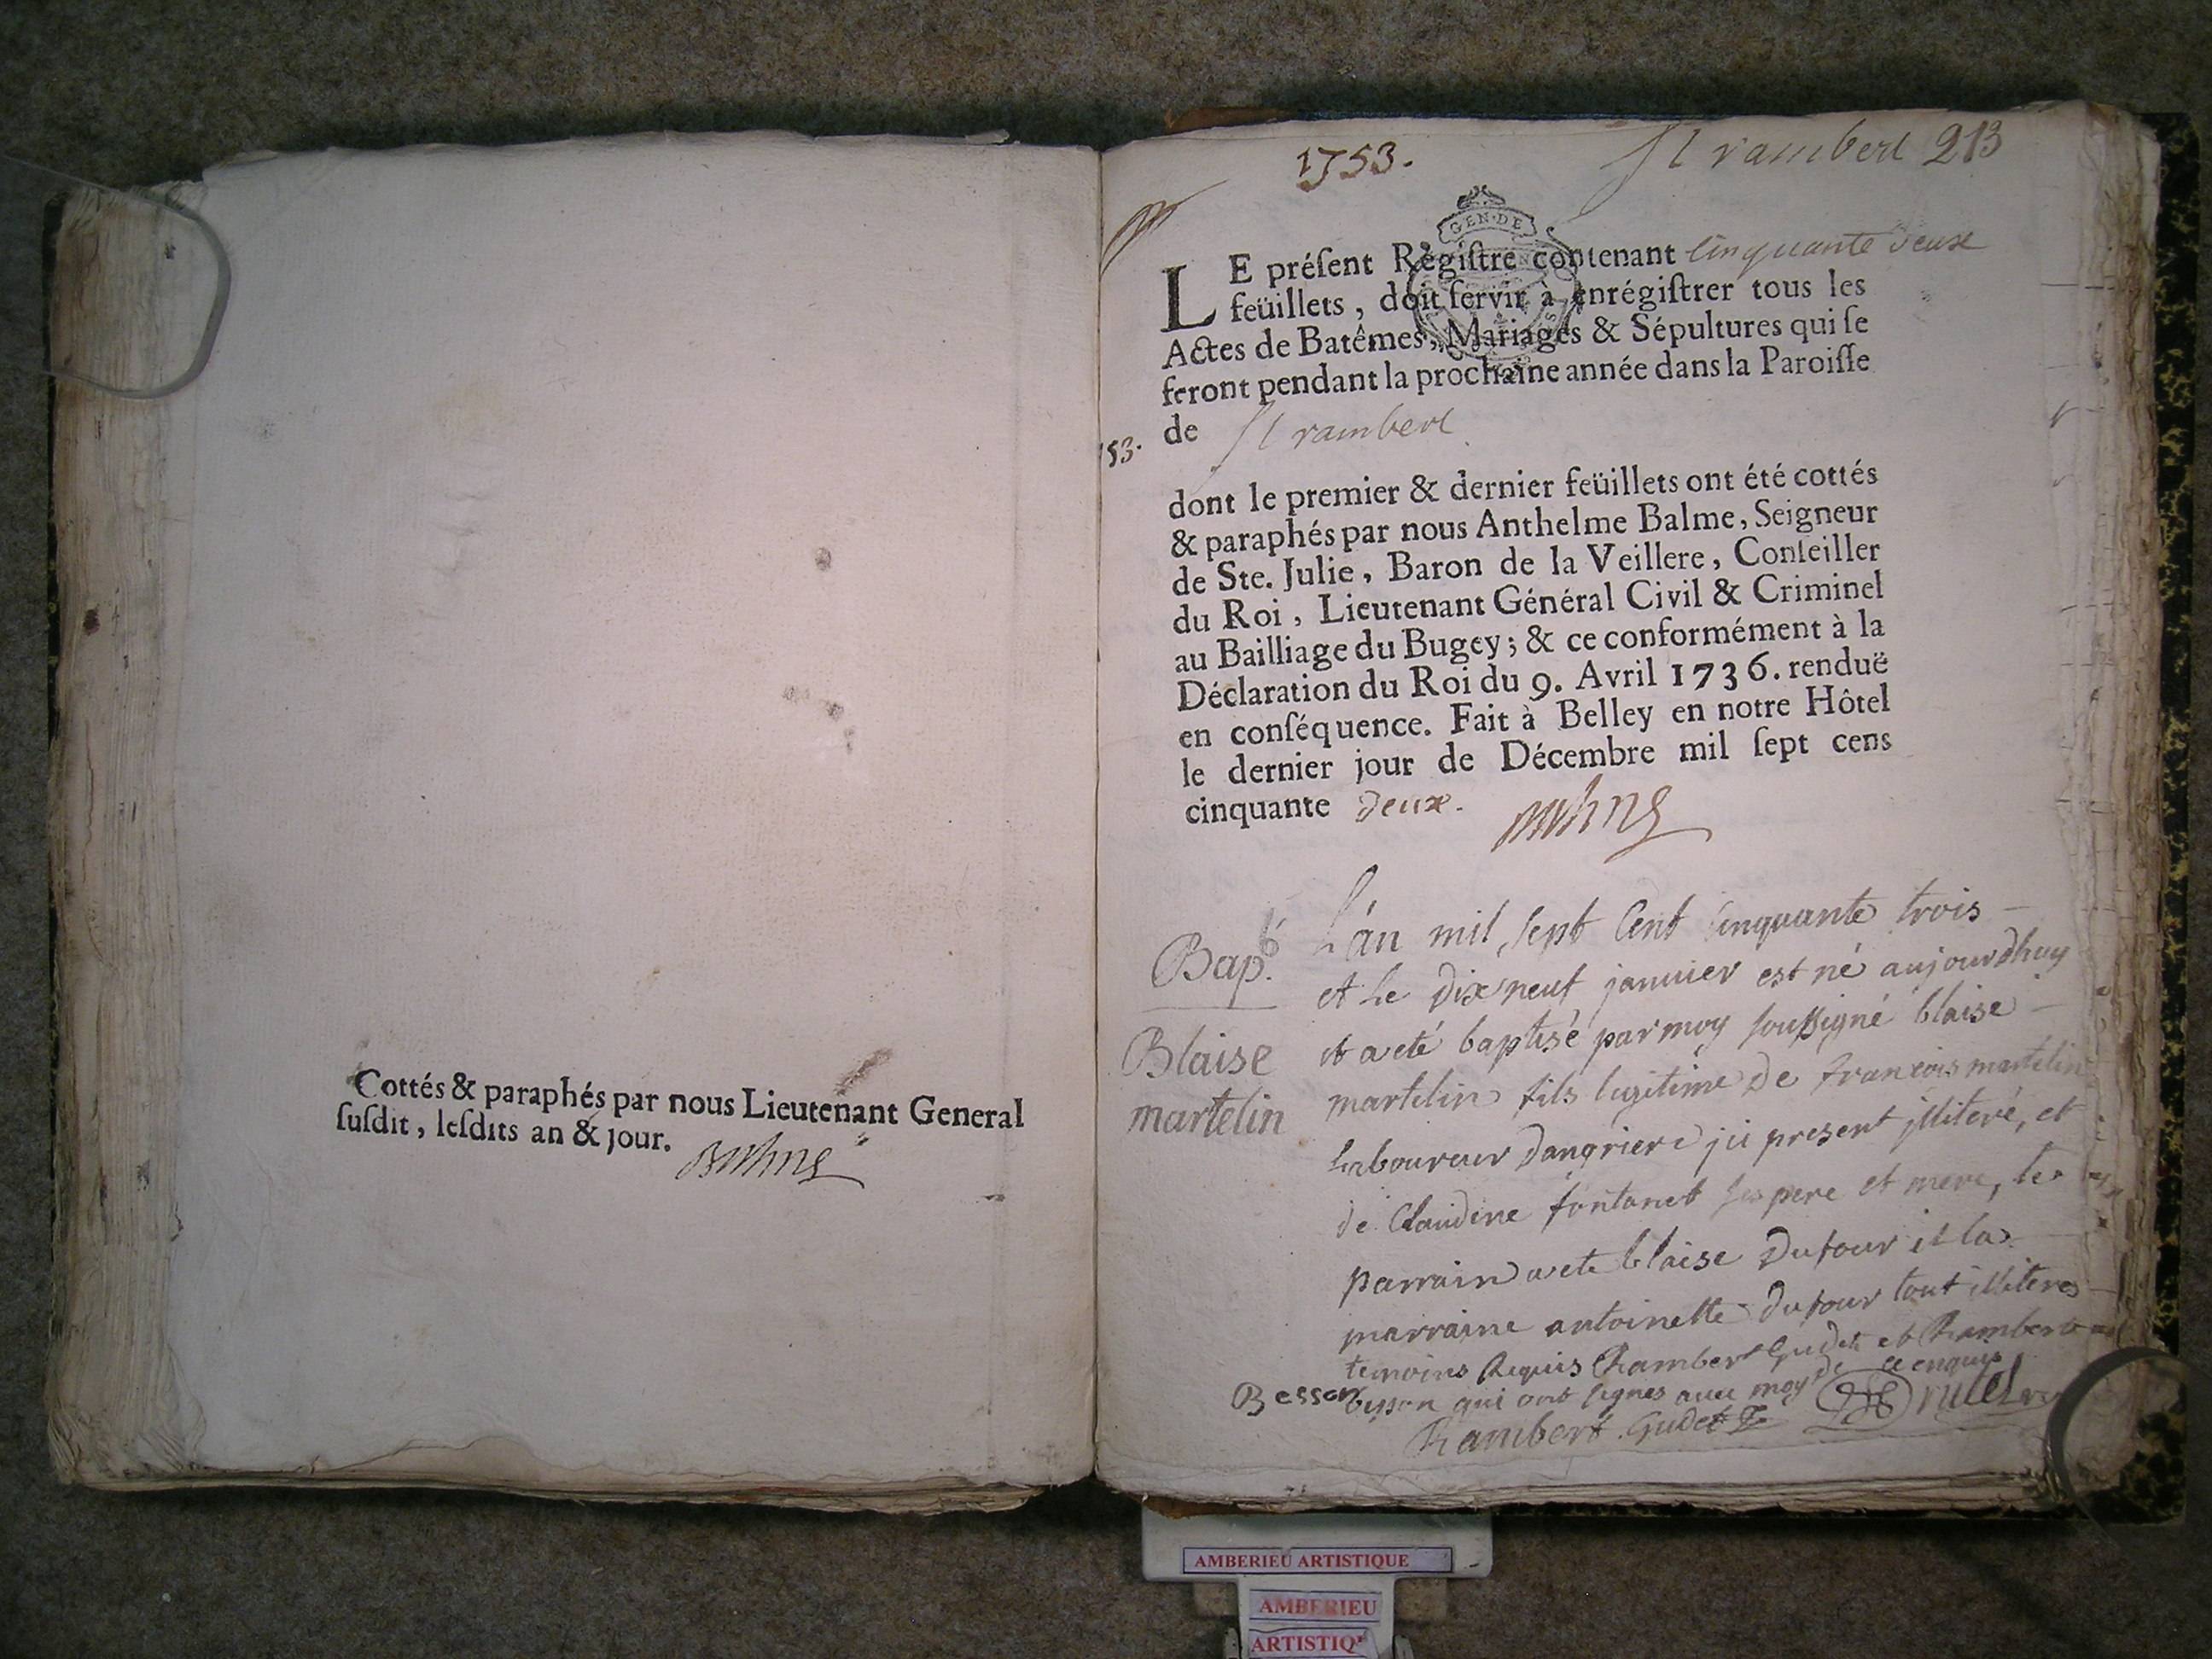 Cottés & paraphés par nous Lieutenant General
ſuſdit, leſdits an & jour.
1753.
St rambert 213
GEN·DE
LE préſent Régiſtre contenant Cinquante deux
feüillets, doit ſervir à enrégiſtrer tous les
Actes de Batêmes, Mariages & Sépultures qui ſe
feront pendant la prochaine année dans la Paroiſſe
de St rambert
53.
dont le premier & dernier feüillets ont été cottés
& paraphés par nous Anthelme Balme, Seigneur
de Ste. Julie, Baron de la Veillere, Conſeiller
du Roi, Lieutenant Général Civil & Criminel
au Bailliage du Bugey; & ce conformément à la
Déclaration du Roi du 9. Avril 1736. renduë
en conſéquence. Fait à Belley en notre Hôtel
le dernier jour de Décembre mil ſept cens
cinquante deux.
Bapt.
Blaise
martelin
L'an mil sept Cent Cinquante trois
et Le dix neuf janvier est né aujourdhuy
et a eté baptisé par moy soussigné blaise
martelin fils legitime de francois martelin
Laboureur dangriere ici present illiteré, et
de Claudine fontanet ses pere et mere, le
parrain a ete blaise Dufour et la
marraine antoinette dufour tout illiteres
temoins Requis Rambert Gudet et Rambert
besson qui ont signes avec moy de ce enquis
Besson
Rambert Gudet
AMBERIEU ARTISTIQUE
AMBERIEU
ARTISTIQ